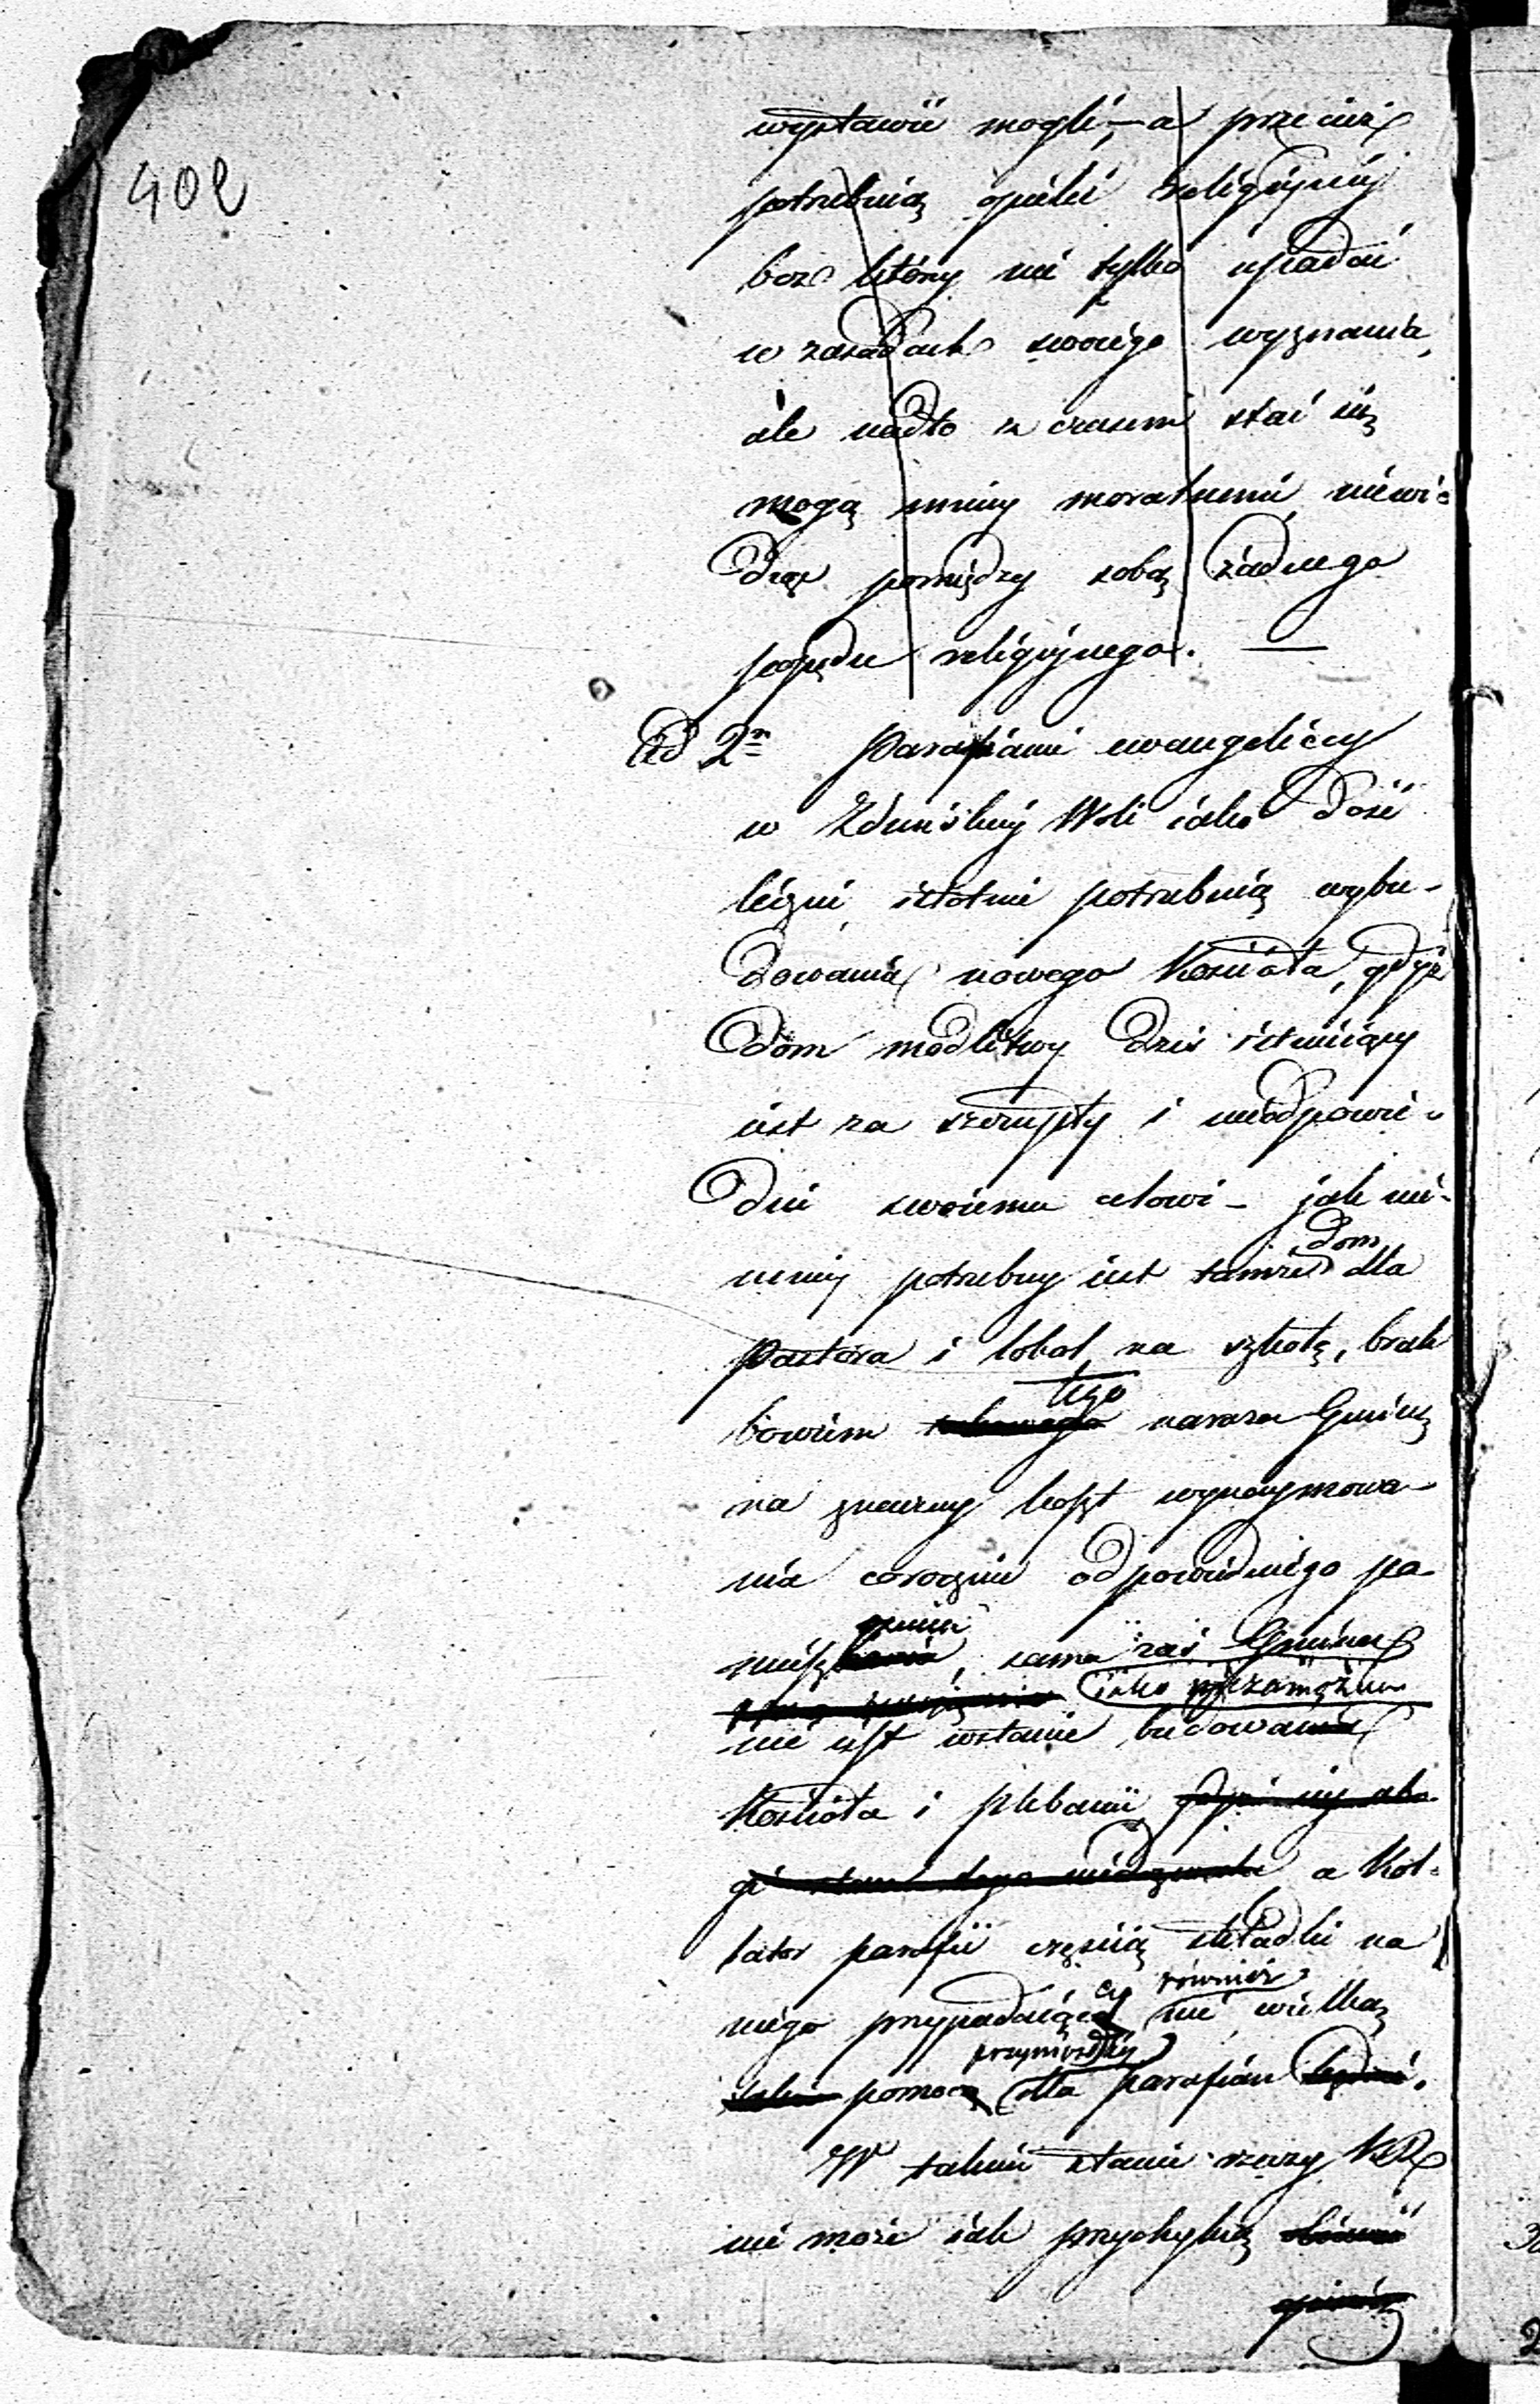 402
wystawić mogli, — a przecież
potrzebuią opieki religijnéj
bez któréj nie tylko upadać
w zasadach swoiégo wyznania,
ale nadto z czasem stać się
mogą mniéj moralnemi, niewi-
dząc pomiędzy sobą żadnego
popędu religijnego. —
Ad 2m Parafianie ewangeliccy
w Zduńskiéj Woli iako dość
liczni istotnie potrzebuią wybu-
dowania nowego Kościoła, gdyż
dom modlitwy dziś istnieiący
iest za szczupły i nieodpowie-
dni swoiemu celowi — jak nie-
mniéj potrzebny iest tamże dom dla
Pastora i lokal na szkołę, brak
bowiem tego naraża Gminę
na znaczny koszt wynaymowa-
nia corocznie odpowiedniego po-
mieszczenia, sama zaś Gmina
iako niezamożna
nie iest wstanie budowania
Kościoła i plebanii
a Kol-
lator parafii częścią składki na
niego przypadaiącéj również nie wielką
pomoc przyniósłby dla parafian.
W takim stanie rzeczy KR
nie może iak przychylną
opinię